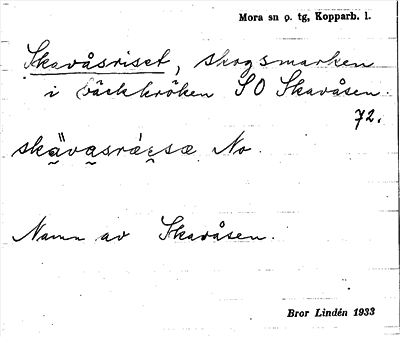 Mora sn o. tg, Kopparb. l.
Skavåsriset, skogsmarken
i bäckkröken SO Skavåsen.
72.
No.
Namn av Skavåsen.
Bror Lindén 1933